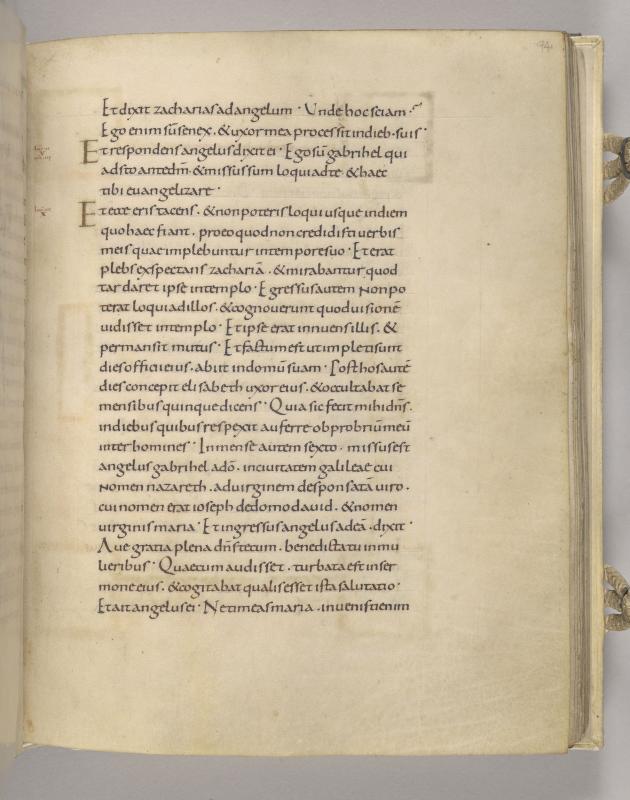 94
Et dixit zacharias ad angelum · Unde hoc sciam ·
Ego enim sū senex . & uxor mea processit in dieb· suis ·
Et respondens angelus dixit ei · Ego sū gabrihel qui
adsto ante dm̄ · & missus sum loqui ad te · & haec
tibi evangelizare ·
Et ecce eris tacens . & non poteris loqui usque in diem
quo haec fiant . pro eo quod non credidisti verbis
meis quae implebuntur in tempore suo · Et erat
plebs exspectans zachariā . & mirabantur quod
tardaret ipse in templo · Egressus autem non po
terat loqui ad illos . & cognoverunt quod visionē
vidisset in templo · Et ipse erat innuens illis . &
permansit mutus · Et factum est ut impleti sunt
dies officii eius . abiit in domū suam · Post hos autē
dies concepit elisabeth uxor eius . & occultabat se
mensibus quinque dicens · Quia sic fecit mihi dn̄s .
in diebus quibus respexit auferre obprobriū meū
inter homines · In mense autem sexto . missus est
angelus gabrihel a dō . in civitatem galileae cui
nomen nazareth . ad virginem desponsatā viro .
cui nomen erat ioseph de domo david . & nomen
virginis maria · Et ingressus angelus ad eā . dixit ·
Ave gratia plena dn̄s tecum . benedicta tu in mu
lieribus · Quae cum audisset . turbata est in ser
mone eius . & cogitabat qualis esset ista salutatio ·
Et ait angelus ei · Ne timeas maria . invenisti enim